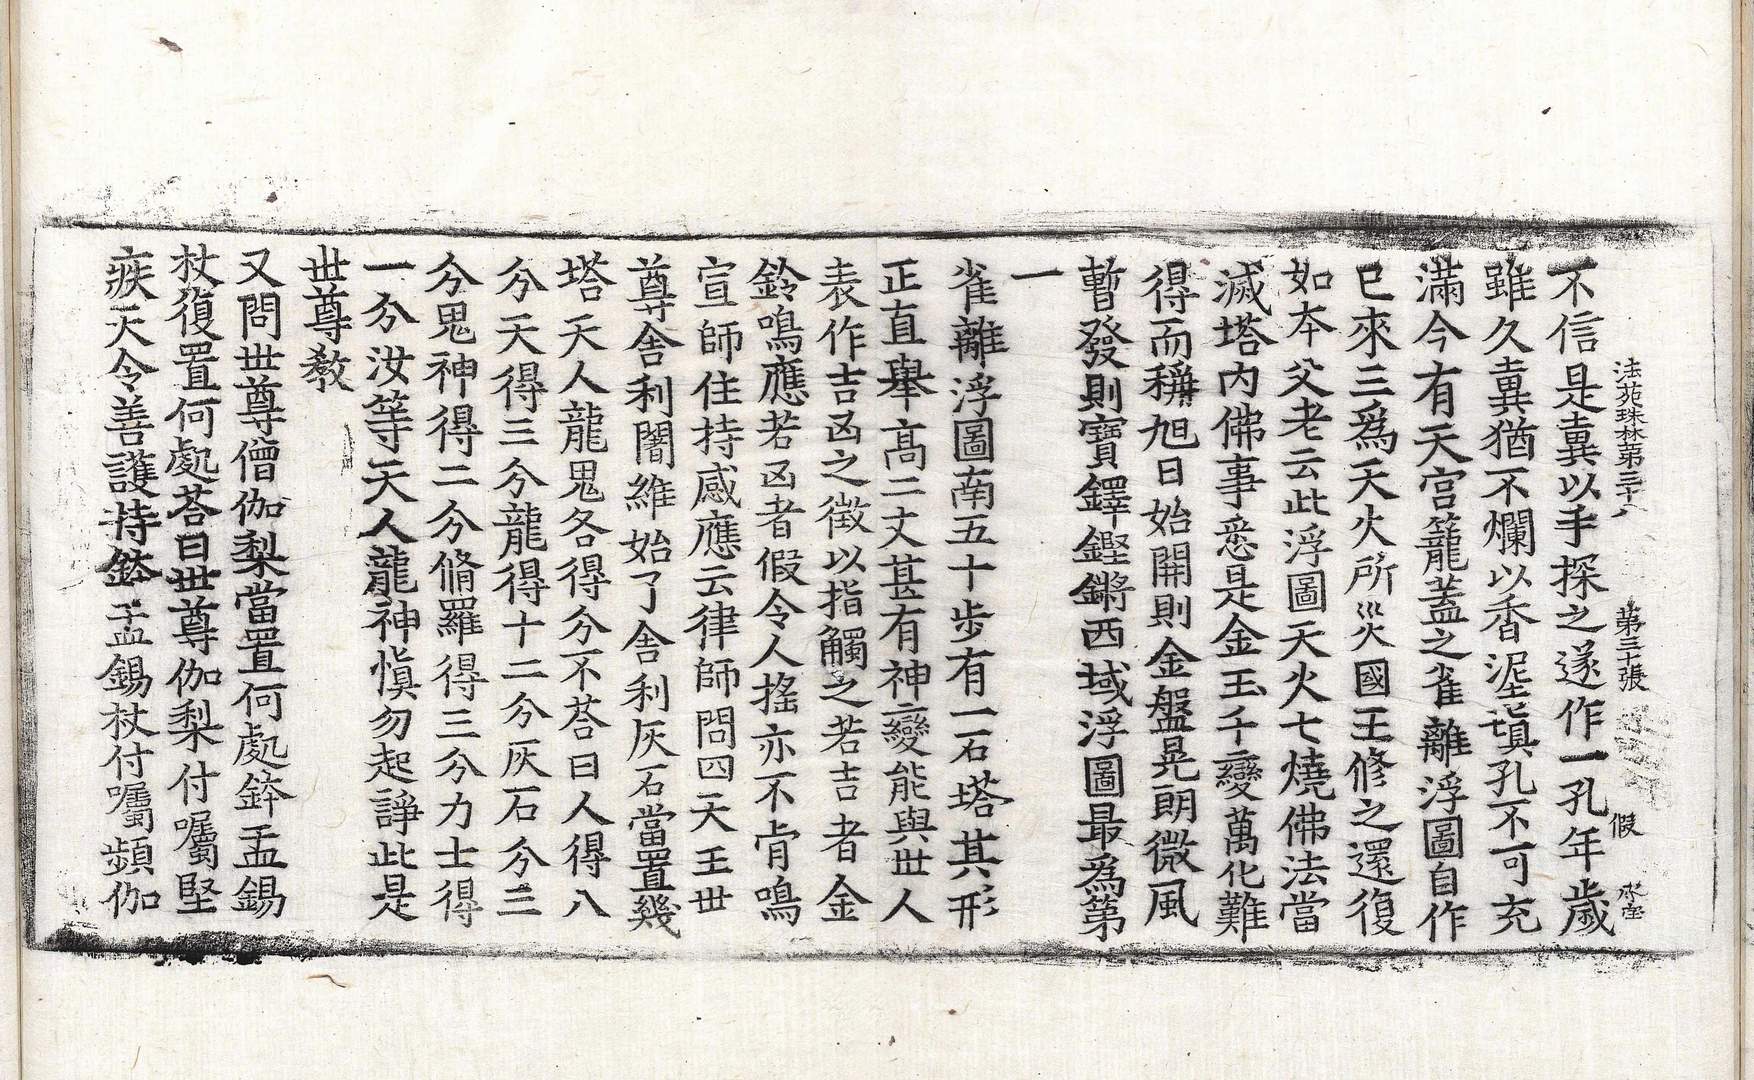 法苑珠林第三十八 第三十張 假
不信是糞以手探之遂作一孔年歲
雖久糞猶不爛以香泥塡孔不可充
滿今有天宮籠盖之雀離浮圖自作
已來三爲天火所災國王修之還復
如夲父老云此浮圖天火七燒佛法當
滅塔内佛事悉是金玉千變萬化難
得而稱旭日始開則金盤晃朗微風
暫發則寶鐸鏗鏘西域浮圖最為第
一
雀離浮圖南五十步有一石塔其形
正直舉高二丈甚有神變能與世人
表作吉凶之徴以指觸之若吉者金
鈴鳴應若凶者假令人搖亦不肯鳴
宣師住持感應云律師問四天王世
尊舎利闍維始了舎利灰石當置幾
塔天人龍鬼各得分不荅曰人得八
分天得三分龍得十二分灰石分三
分鬼神得二分脩羅得三分力士得
一分汝等天人龍神慎勿起諍此是
世尊教
又問世尊僧伽梨當置何處鉢盂錫
杖復置何處荅曰世尊伽梨付囑堅
疾天令善護持鉢盂錫杖付囑頻伽